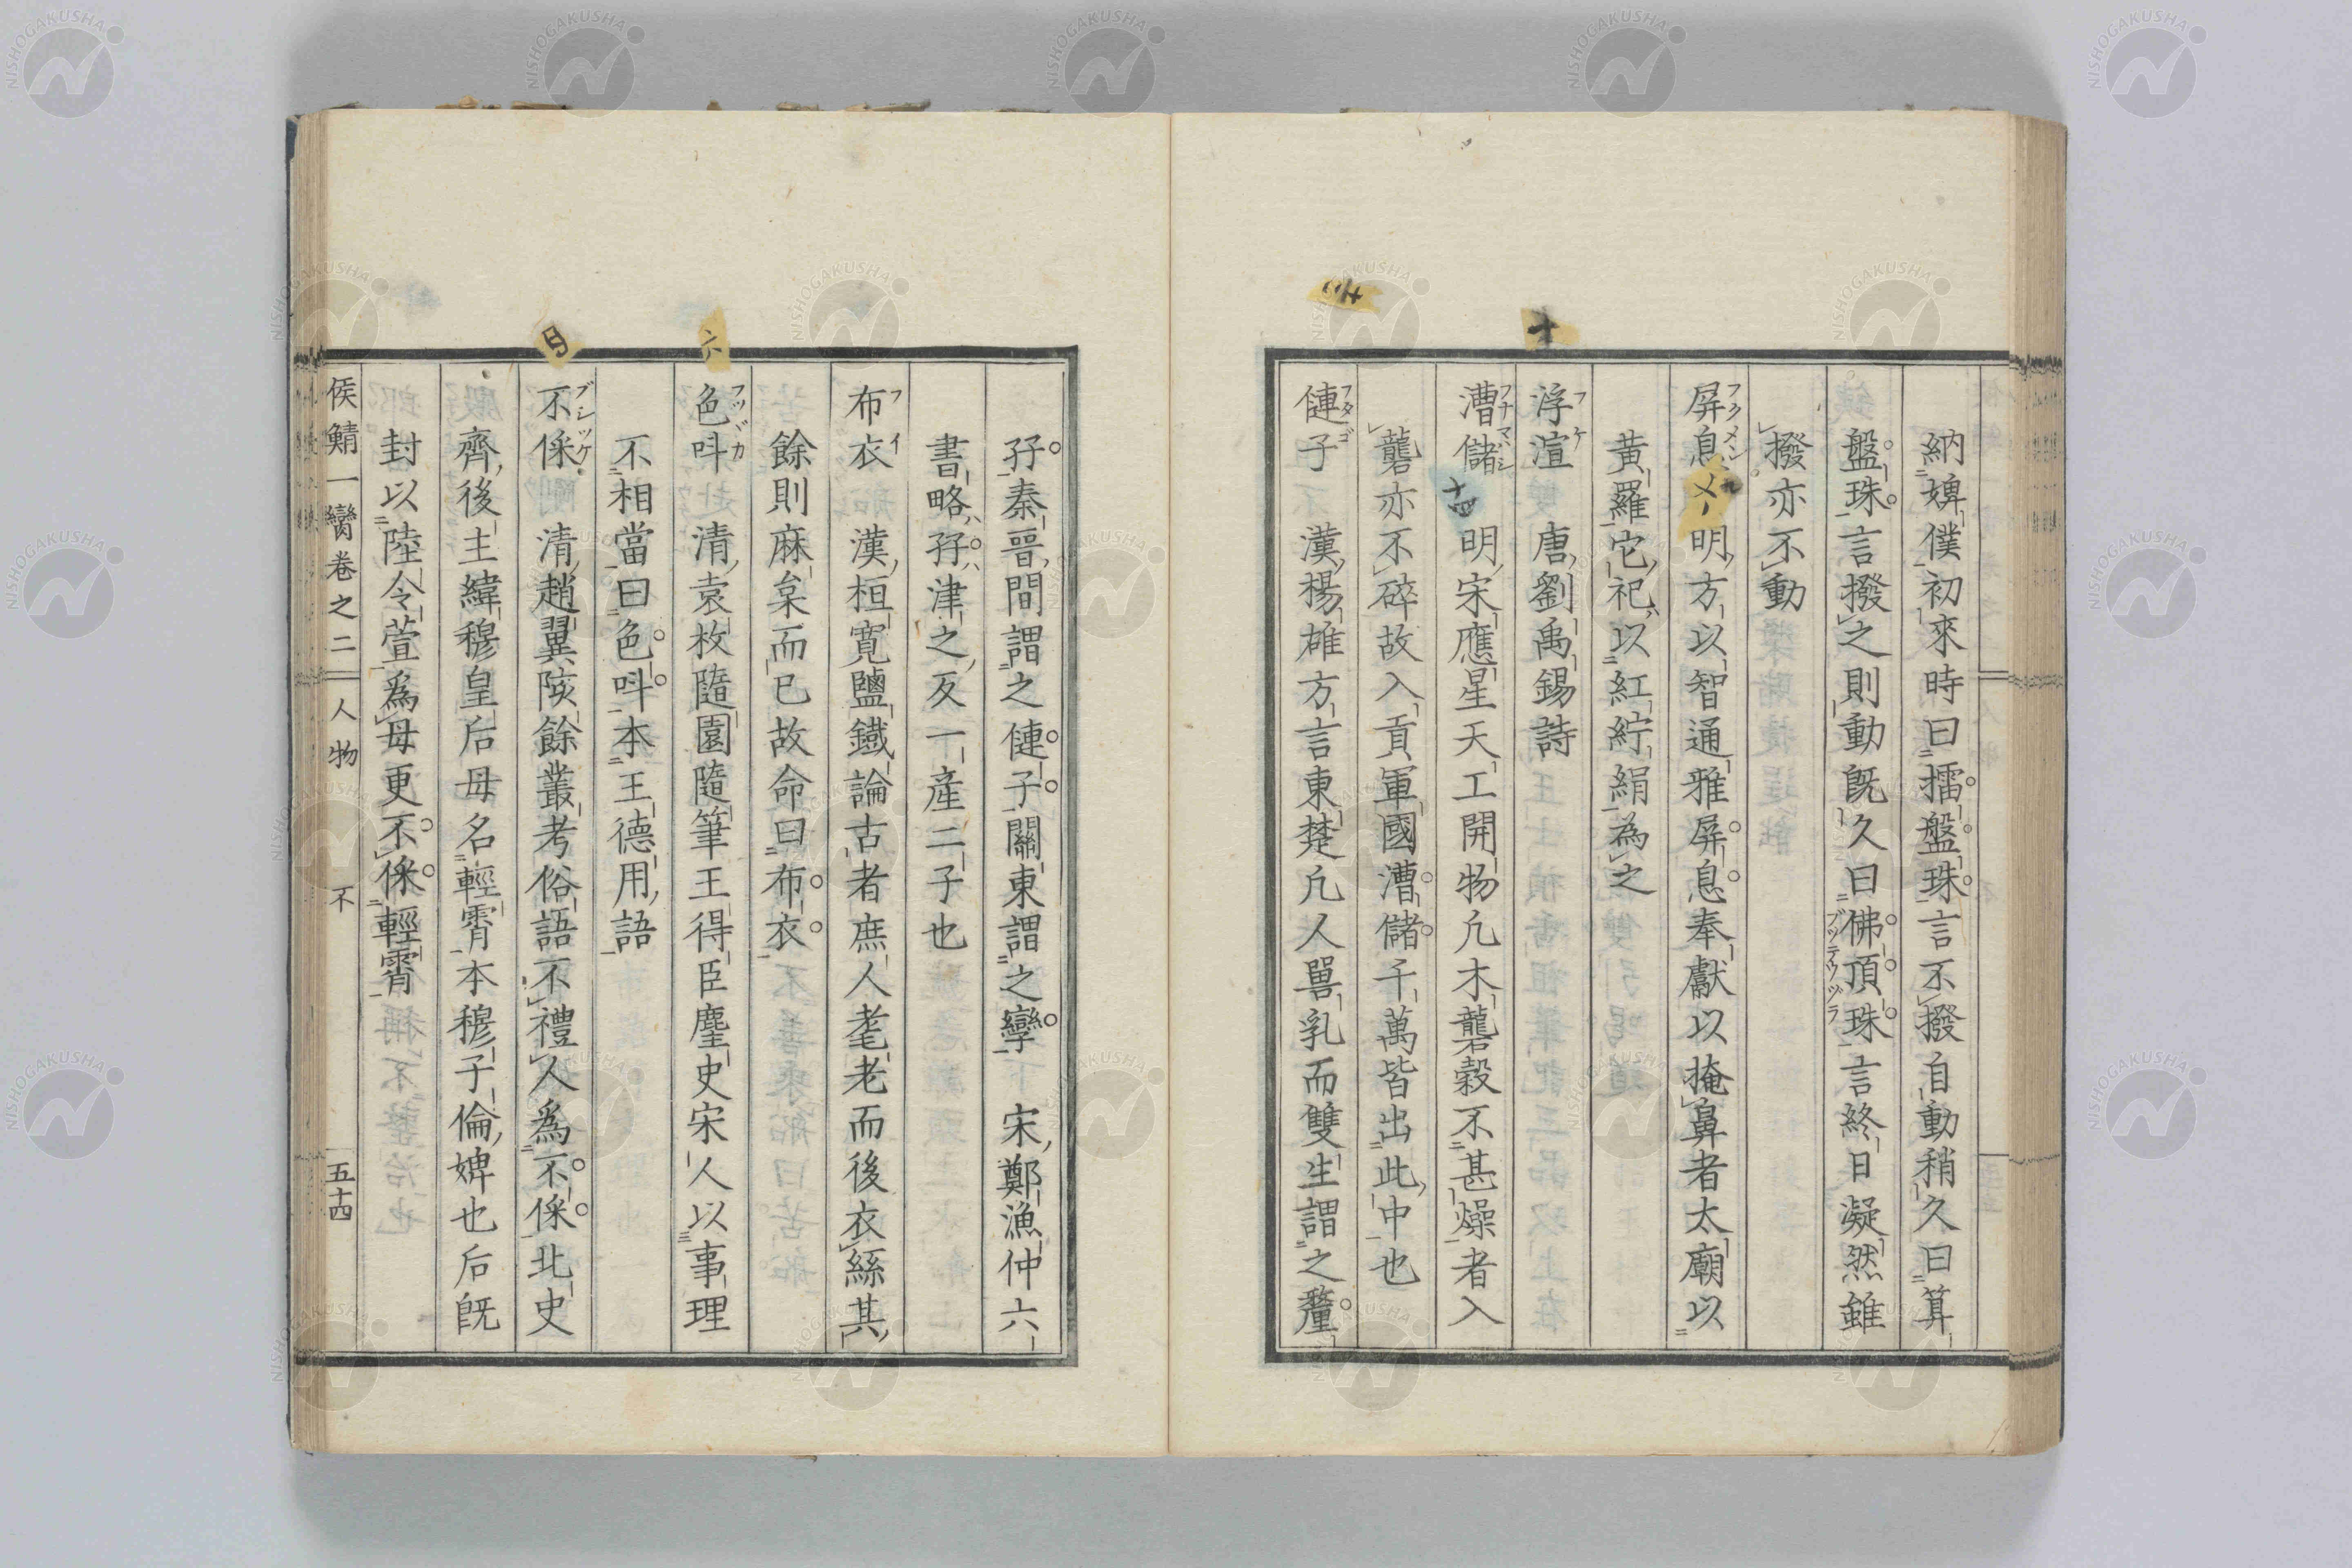 納婢僕初來時曰擂盤珠言不撥自動稍久曰算
盤珠言撥之則動既久曰佛頂珠言終日凝然雖
撥亦不動
屏息 明方以智通雅屏息奉獻以掩鼻者太廟以
黃羅它祀以紅紵絹為之
浮渲 唐劉禹錫詩
漕儲 明宋應星天工開物凢木礱穀不甚燥者入
礱亦不碎故入貢軍國漕儲千萬皆出此中也
僆子 漢楊雄方言東楚凢人嘼乳而雙生謂之釐
孖秦晉間謂之僆子關東謂之孿 宋鄭漁仲六
書略孖津之反一產二子也
布衣 漢桓寬鹽鐵論古者庶人耄老而後衣絲其
餘則麻枲而已故命曰布衣
色呌 清袁枚隨園隨筆王得臣麈史宋人以事理
不相當曰色呌本王德用語
不倸 清趙翼陔餘叢考俗語不禮人爲不倸北史
齊後主緯穆皇后母名輕霄本穆子倫婢也后既
封以陸令萱爲母更不倸輕霄
侯鯖一臠卷之二 人物 不 五十四
フクメン
フケ
フナマハシ
フタゴ
フイ
フツガ
ブシツケ
ブッテウヅラ
十
六
NISHOGAKUSHA